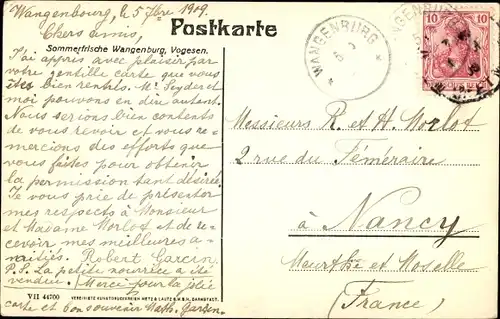 Wangenbourg, le 5 7bre 1909.
Chers amis,
Postkarte
Sommerfrische Wangenburg, Vogesen.
J'ai appris avec plaisir par
votre gentille carte que vous
êtes bien rentrés. Mr Seyder et
moi pouvons en dire autant.
Nous serions bien contents
de vous revoir et vous re-
mercions des efforts que
vous faites pour obtenir
la permission tant désirée.
Je vous prie de présenter
mes respects à Monsieur
et Madame Morlot et de re-
cevoir mes meilleures a-
mitiés. Robert
P.S. La petite nourrice a été
vendue. Merci pour la jolie
carte et bon souvenir Math.
WANGENBURG
10 10
Messieurs R. et H. Morlot
2 rue du Téméraire
à Nancy
Meurthe et Moselle
(France)
VII 44700 VEREINIGTE KUNSTDRUCKEREIEN METZ & LAUTZ G.M.B.H. DARMSTADT.